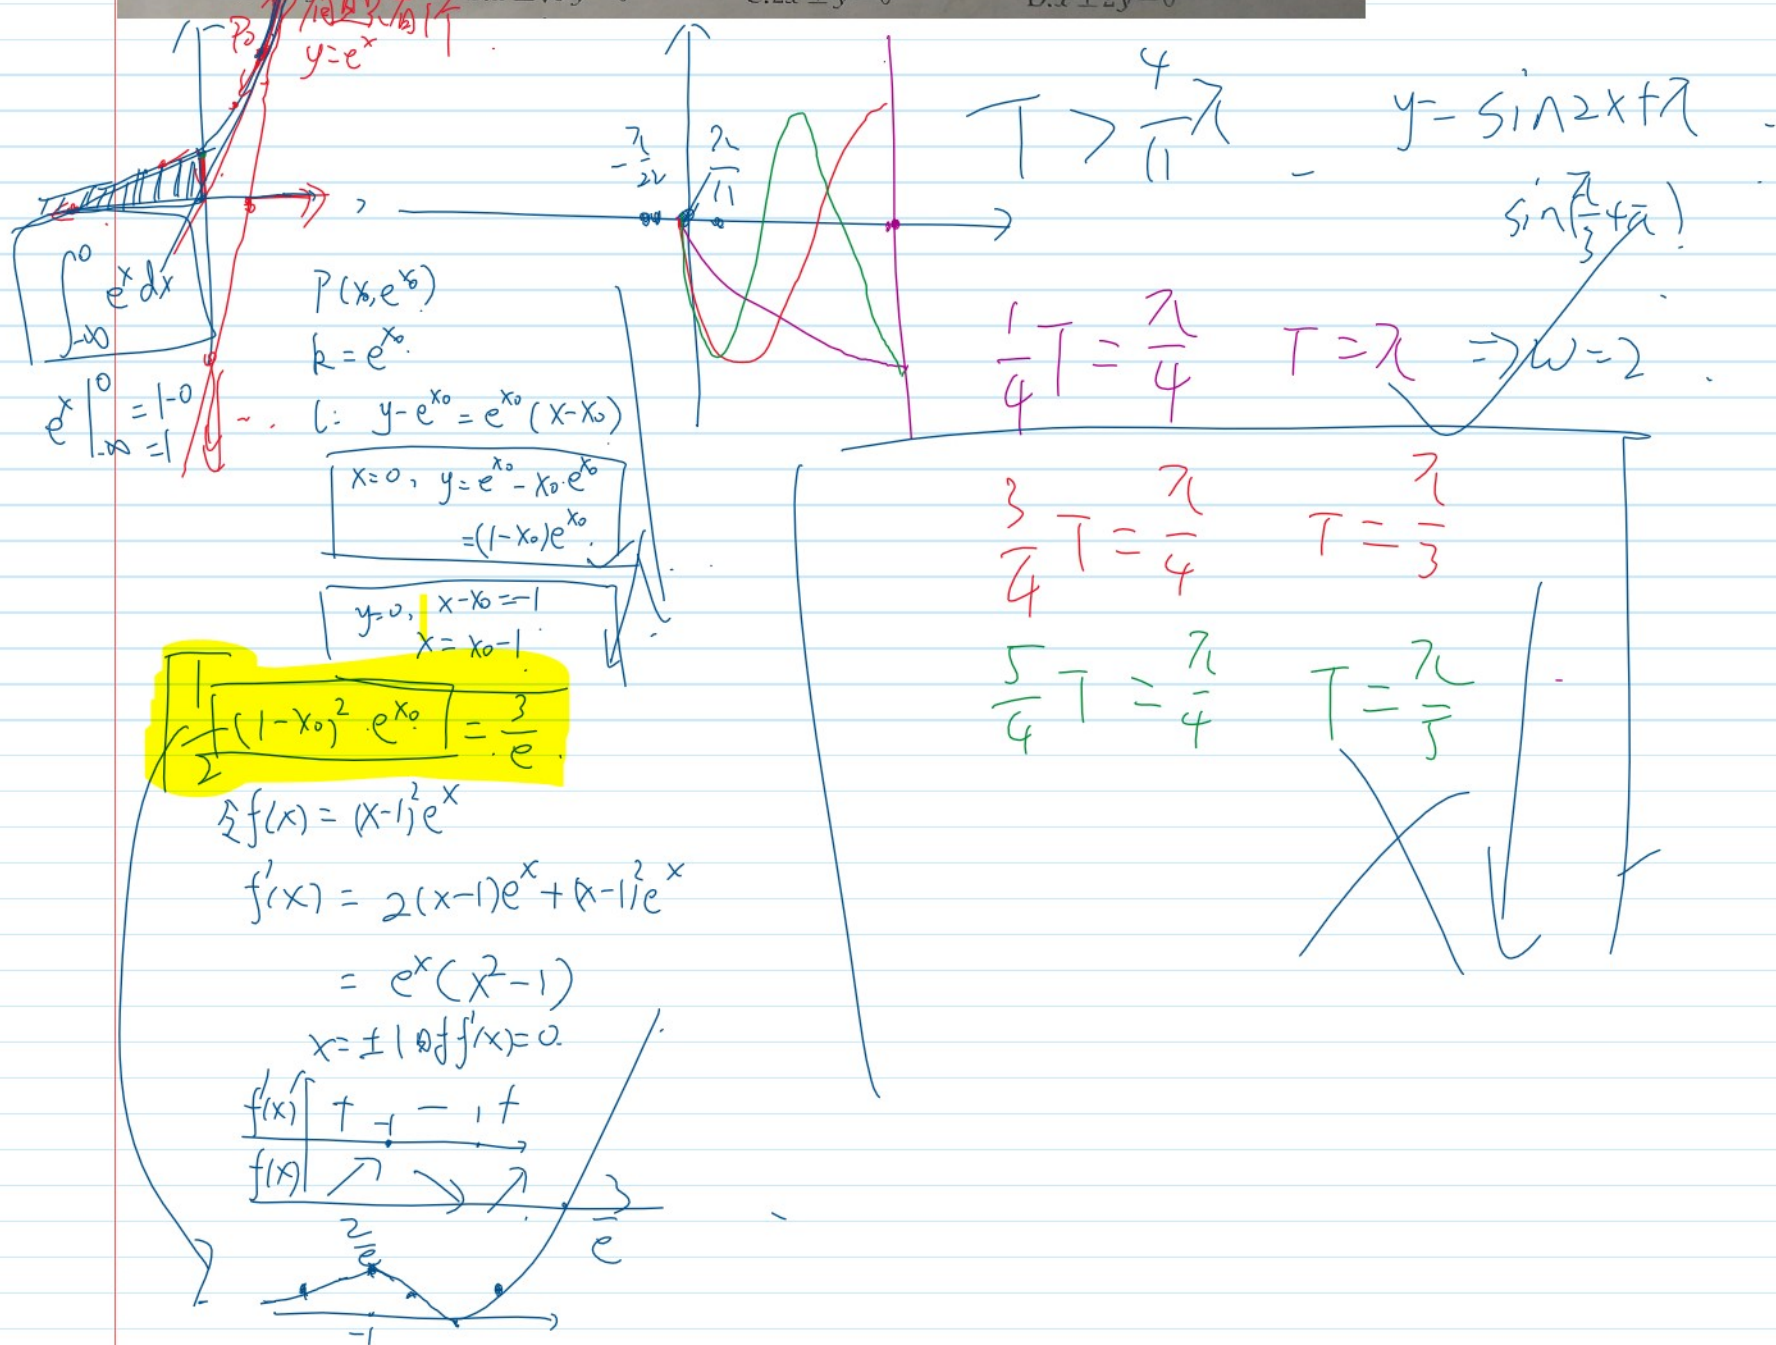 P₀
y=eˣ
∫₋∞⁰ eˣdx
eˣ|₋∞⁰ = 1-0
=1
P(x₀,e^x₀)
k = e^x₀
l: y-e^x₀ = e^x₀(x-x₀)
x=0, y=e^x₀-x₀·e^x₀
=(1-x₀)e^x₀.
y=0, x-x₀=-1
x=x₀-1
1/2 (1-x₀)²·e^x₀ = 3/e
令f(x) = (x-1)²eˣ
f'(x) = 2(x-1)eˣ+(x-1)²eˣ
= eˣ(x²-1)
x=±1时f'(x)=0.
f'(x) + -1 - 1 +
f(x) ↗ ↘ ↗
2/e 3/e
-1
-π/22 π/11
T > 4/11 π
y= sin2x+π
sin(π/3+π)
1/4 T = π/4 T = π ⇒ω=2
3/4 T = π/4 T = π/3
5/4 T = π/4 T = π/5